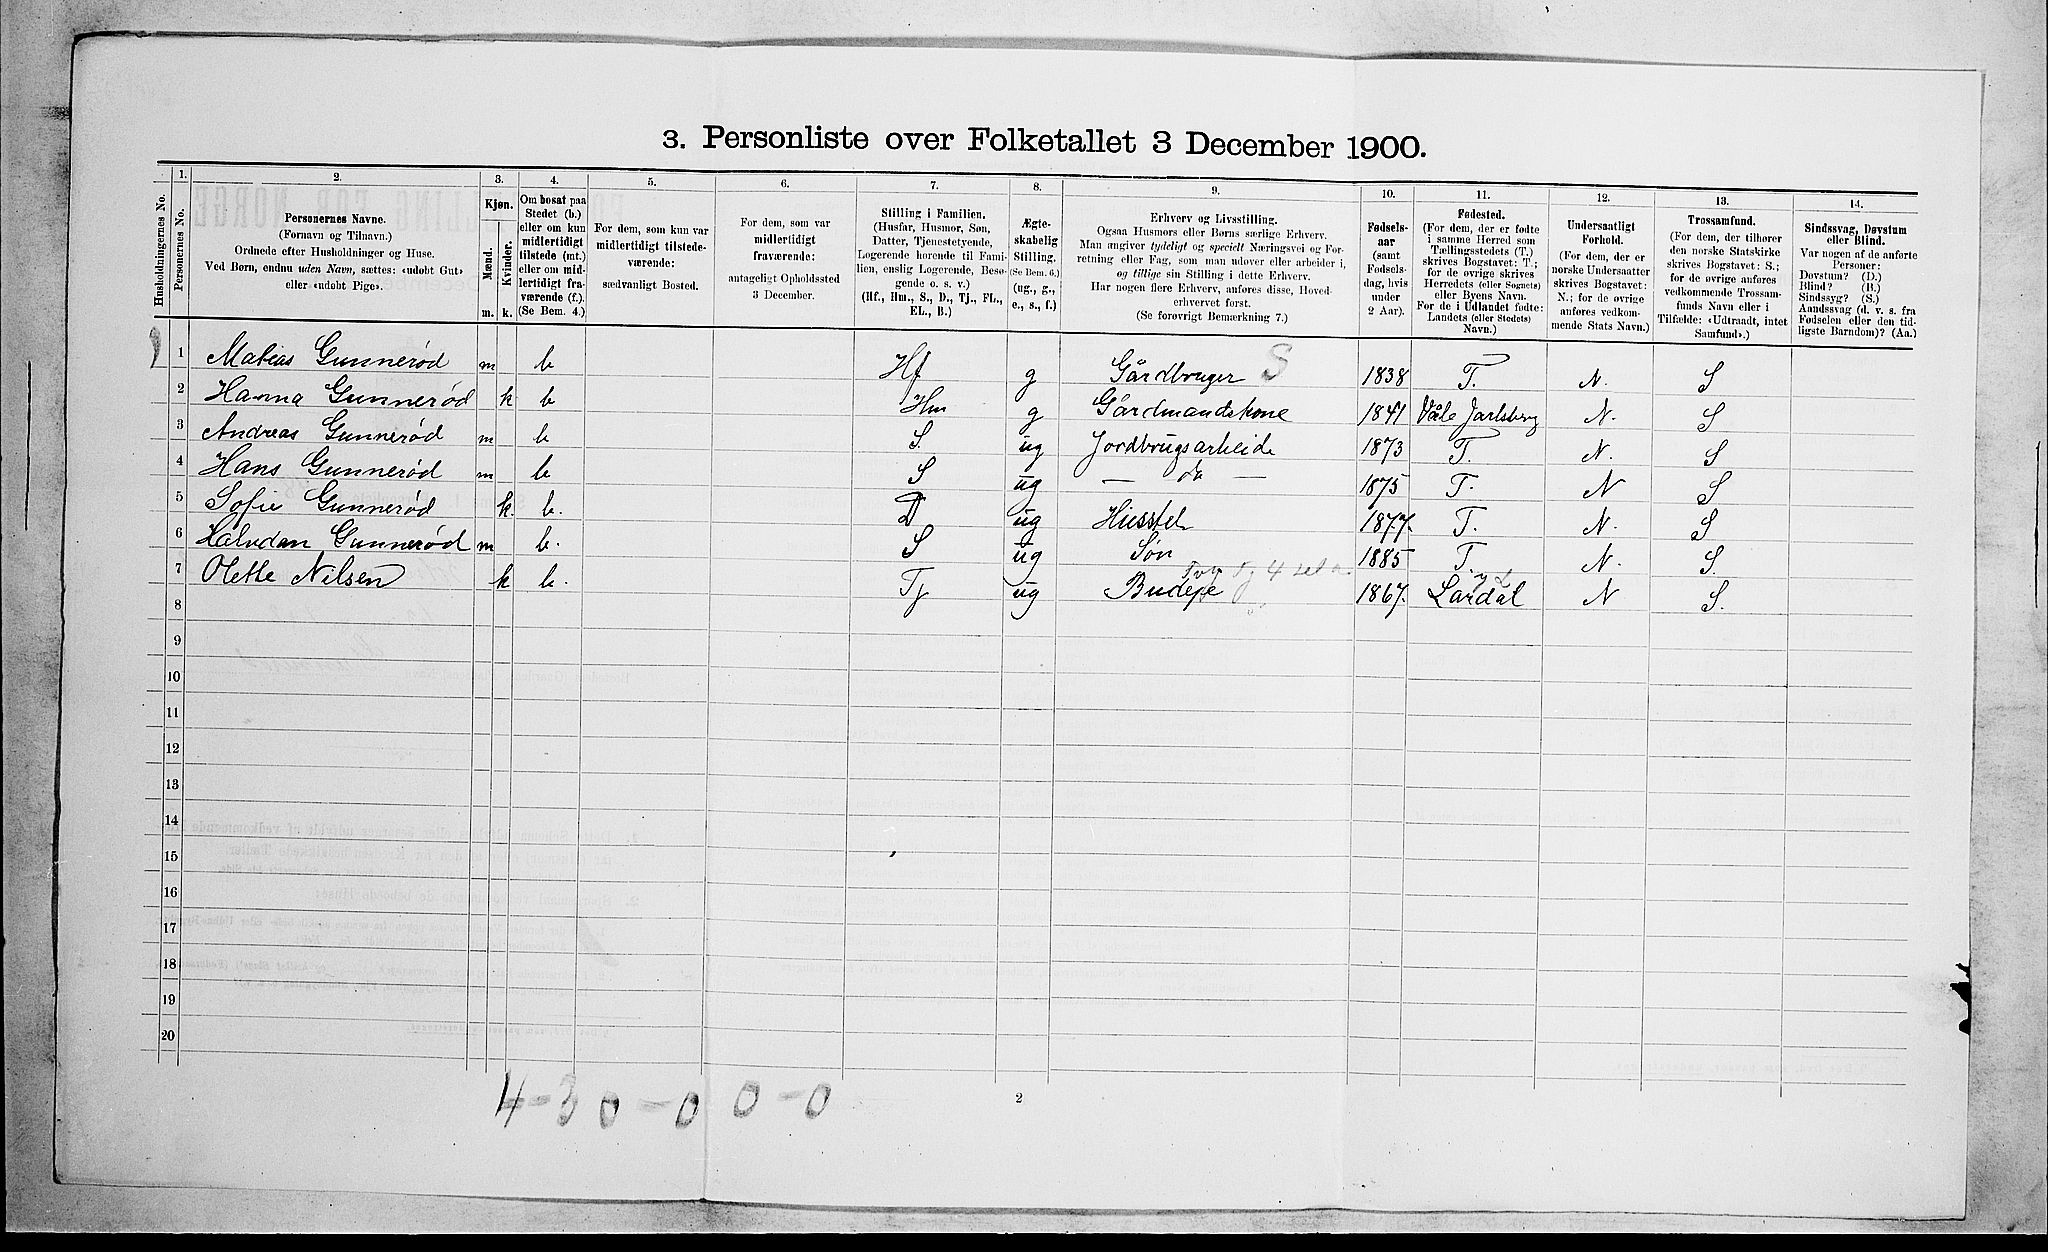 3. Personliste over Folketallet 3 December 1900.
Husholdningernes No.
1. Personernes No.
2. Personernes Navne. (Fornavn og Tilnavn.) Ordnede efter Husholdninger og Huse. Ved Børn, endnu uden Navn, sættes: «udøbt Gut» eller «udøbt Pige».
3. Kjøn. Mænd. Kvinder. m. k.
4. Om bosat paa Stedet (b.) eller om kun midlertidigt tilstede (mt.) eller om midlertidigt fraværende (f.). (Se Bem. 4.)
5. For dem, som kun var midlertidigt tilstedeværende: sædvanligt Bosted.
6. For dem, som var midlertidigt fraværende: antageligt Opholdssted 3 December.
7. Stilling i Familien. (Husfar, Husmor, Søn, Datter, Tjenestetyende, Logerende hørende til Familien, enslig Logerende, Besøgende o. s. v.) (Hf., Hm., S., D., Tj., FL., EL., B.)
8. Ægteskabelig Stilling. (Se Bem. 6.) (ug., g., e., s., f.)
9. Erhverv og Livsstilling. Ogsaa Husmors eller Børns særlige Erhverv. Man angiver tydeligt og specielt Næringsvei og Forretning eller Fag, som man udøver eller arbeider i, og tillige sin Stilling i dette Erhverv. Har nogen flere Erhverv, anføres disse, Hovederhvervet først. (Se forøvrigt Bemærkning 7.)
10. Fødselsaar (samt Fødselsdag, hvis under 2 Aar).
11. Fødested. (For dem, der er fødte i samme Herred som Tællingsstedets (T.) skrives Bogstavet: T.; for de øvrige skrives Herredets (eller Sognets) eller Byens Navn. For de i Udlandet fødte: Landets (eller Stedets) Navn.)
12. Undersaatligt Forhold. (For dem, der er norske Undersaatter skrives Bogstavet: N.; for de øvrige anføres vedkommende Stats Navn.)
13. Trossamfund. (For dem, der tilhører den norske Statskirke skrives Bogstavet: S.; for de øvrige anføres vedkommende Trossamfunds Navn eller i Tilfælde: «Udtraadt, intet Samfund».)
14. Sindssvag, Døvstum eller Blind. Var nogen af de anførte Personer: Døvstum? (D.) Blind? (B.) Sindssyg? (S.) Aandssvag (d. v. s. fra Fødselen eller den tidligste Barndom)? (Aa.)
1 Matias Gunnerød m b Hf g Gårdbruger S 1838 T. N. S
2 Hanna Gunnerød k b Hm g Gårdmandskone 1841 Våle Jarlsberg N. S
3 Andreas Gunnerød m b S. ug Jordbrugsarbeide 1873 T. N. S
4 Hans Gunnerød m b S ug — do — 1875 T. N S
5 Sofie Gunnerød k. b. D ug Husstel 1877. T. N. S
6 Halvdan Gunnerød m b. S ug Søn 1885 T. N. S.
7 Olette Nilsen k b. Tj ug Budeje 1867. Lardal N S.
8
9
10
11
12
13
14
15
16
17
18
19
20
4-3 0-0 0-0
2